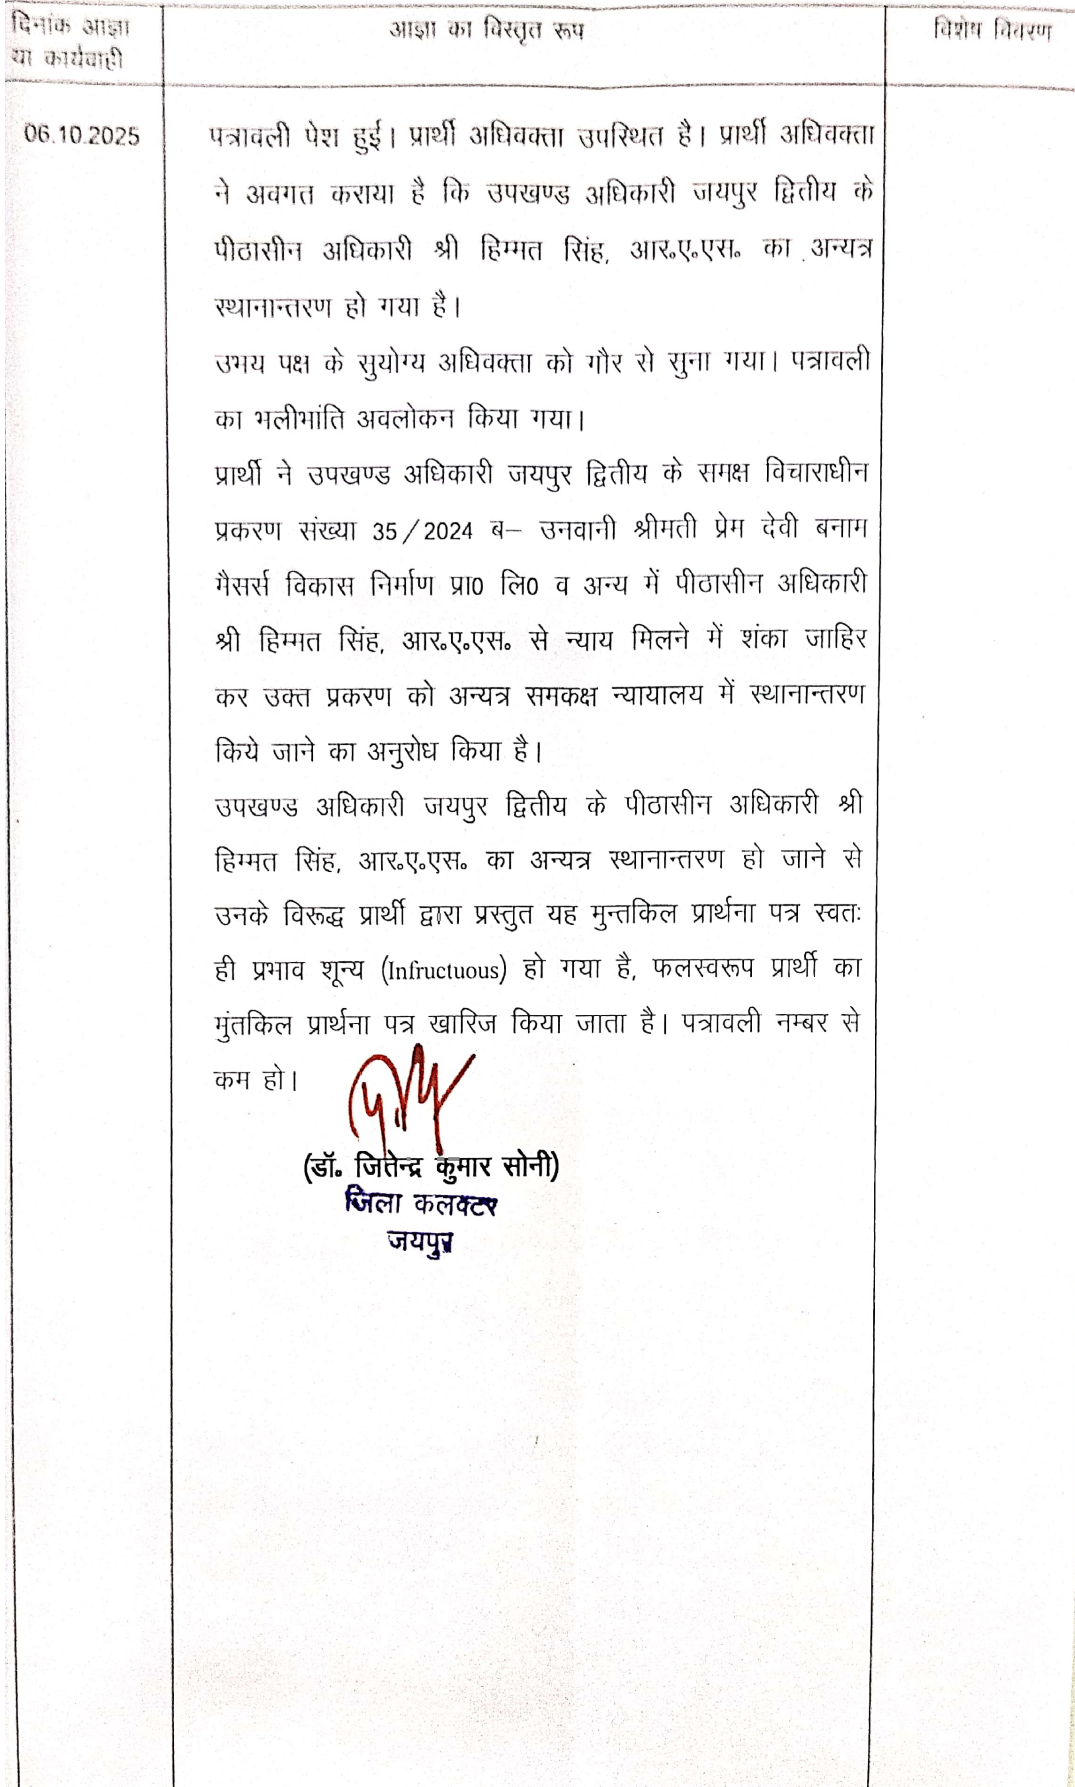 दिनांक आज्ञा
या कार्यवाही
आज्ञा का विस्तृत रूप
विशेष विवरण
06.10.2025
पत्रावली पेश हुई। प्रार्थी अधिवक्ता उपस्थित है। प्रार्थी अधिवक्ता
ने अवगत कराया है कि उपखण्ड अधिकारी जयपुर द्वितीय के
पीठासीन अधिकारी श्री हिम्मत सिंह, आर॰ए॰एस॰ का अन्यत्र
स्थानान्तरण हो गया है।
उभय पक्ष के सुयोग्य अधिवक्ता को गौर से सुना गया। पत्रावली
का भलीभांति अवलोकन किया गया।
प्रार्थी ने उपखण्ड अधिकारी जयपुर द्वितीय के समक्ष विचाराधीन
प्रकरण संख्या 35/2024 ब– उनवानी श्रीमती प्रेम देवी बनाम
मैसर्स विकास निर्माण प्रा0 लि0 व अन्य में पीठासीन अधिकारी
श्री हिम्मत सिंह, आर॰ए॰एस॰ से न्याय मिलने में शंका जाहिर
कर उक्त प्रकरण को अन्यत्र समकक्ष न्यायालय में स्थानान्तरण
किये जाने का अनुरोध किया है।
उपखण्ड अधिकारी जयपुर द्वितीय के पीठासीन अधिकारी श्री
हिम्मत सिंह, आर॰ए॰एस॰ का अन्यत्र स्थानान्तरण हो जाने से
उनके विरूद्ध प्रार्थी द्वारा प्रस्तुत यह मुन्तकिल प्रार्थना पत्र स्वतः
ही प्रभाव शून्य (Infructuous) हो गया है, फलस्वरूप प्रार्थी का
मुंतकिल प्रार्थना पत्र खारिज किया जाता है। पत्रावली नम्बर से
कम हो।
(डॉ॰ जितेन्द्र कुमार सोनी)
जिला कलक्टर
जयपुर